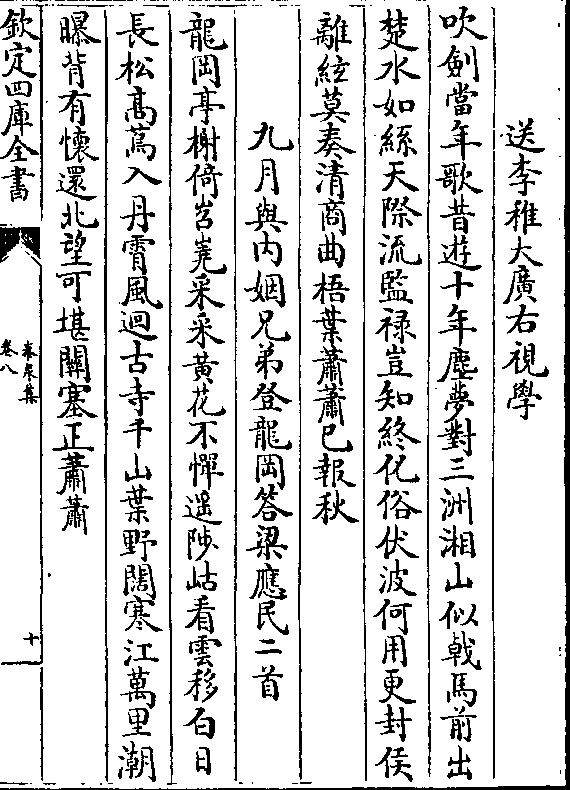 送李稚大廣右視學
吹劍當年歌昔遊十年塵夢對三洲湘山似戟馬前出
楚水如絲天際流監祿豈知終化俗伏波何用更封侯
離絃莫奏清商曲梧葉蕭蕭已報秋
九月與內姻兄弟登龍岡答梁應民二首
龍岡亭榭倚岧嶤采采黃花不憚遥陟岵看雲移白日
長松髙蔦入丹霄風迴古寺千山葉野闊寒江萬里潮
曝背有懷還北望可堪關塞正蕭蕭
欽定四庫全書
卷八
十